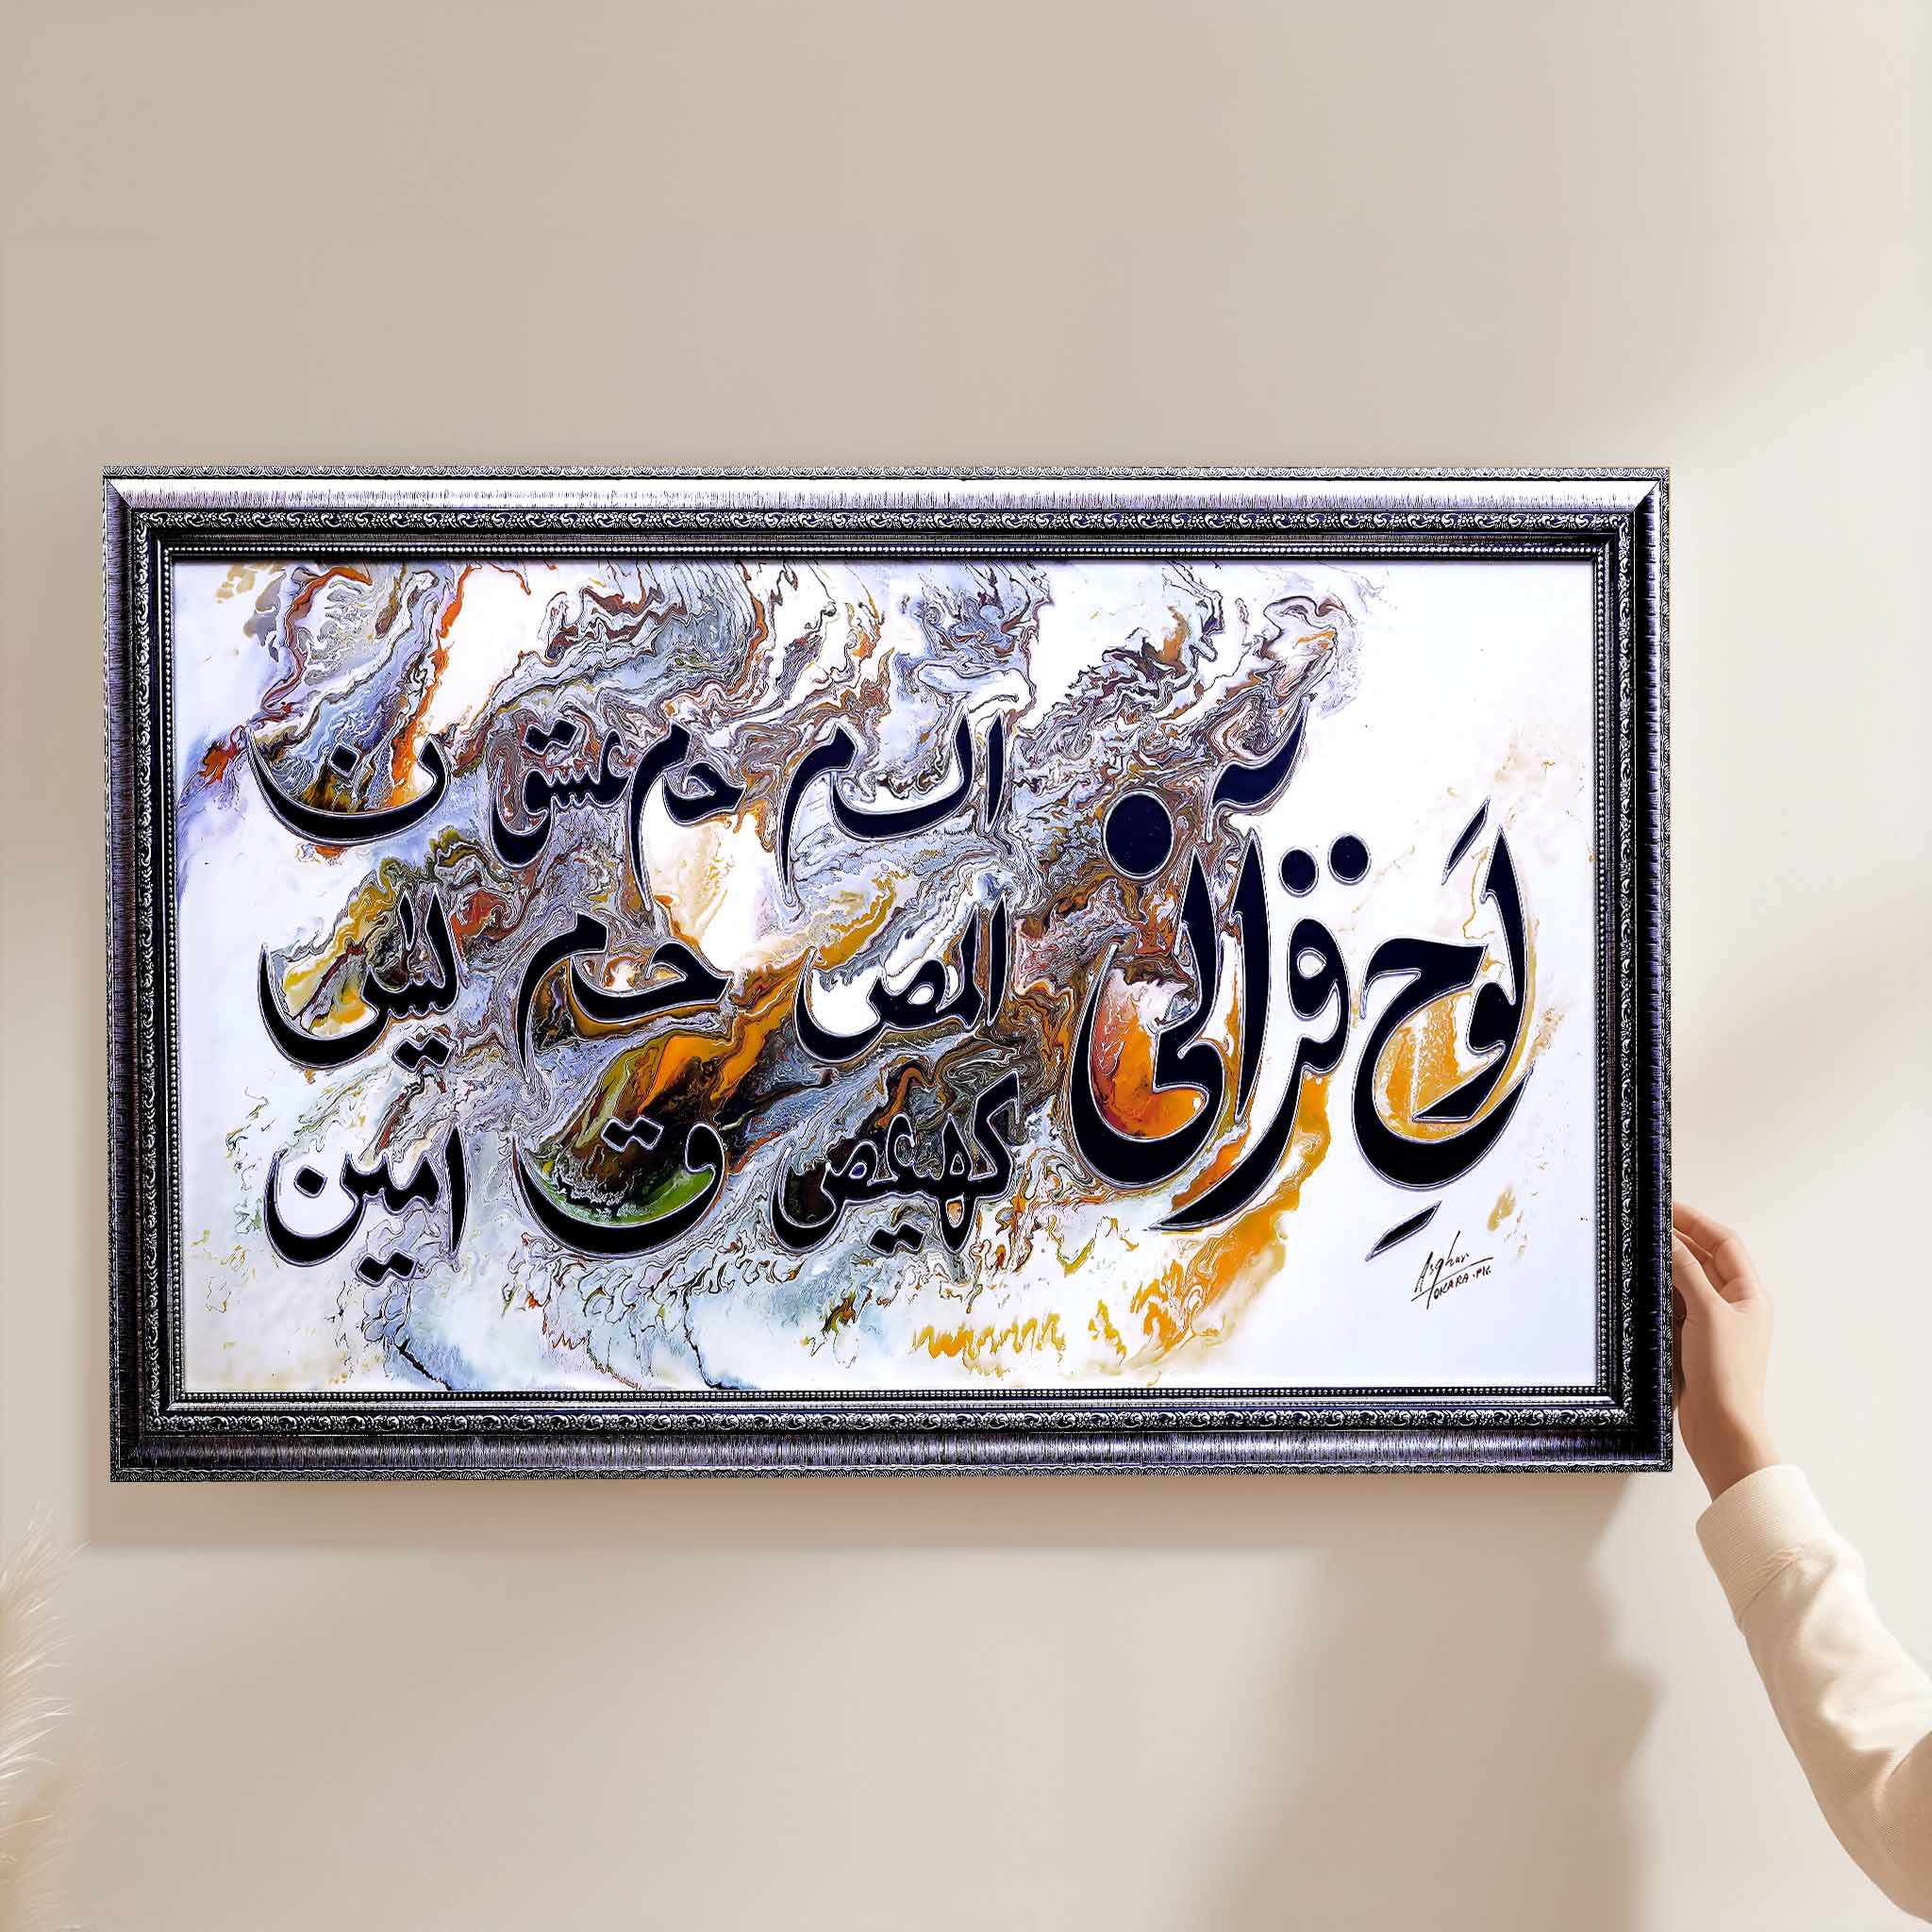 لَوحِ قرآنی
الم حم عسق ن
المص حم یٰس
کھیعص ق امین
Asghar
OKARA-PK.